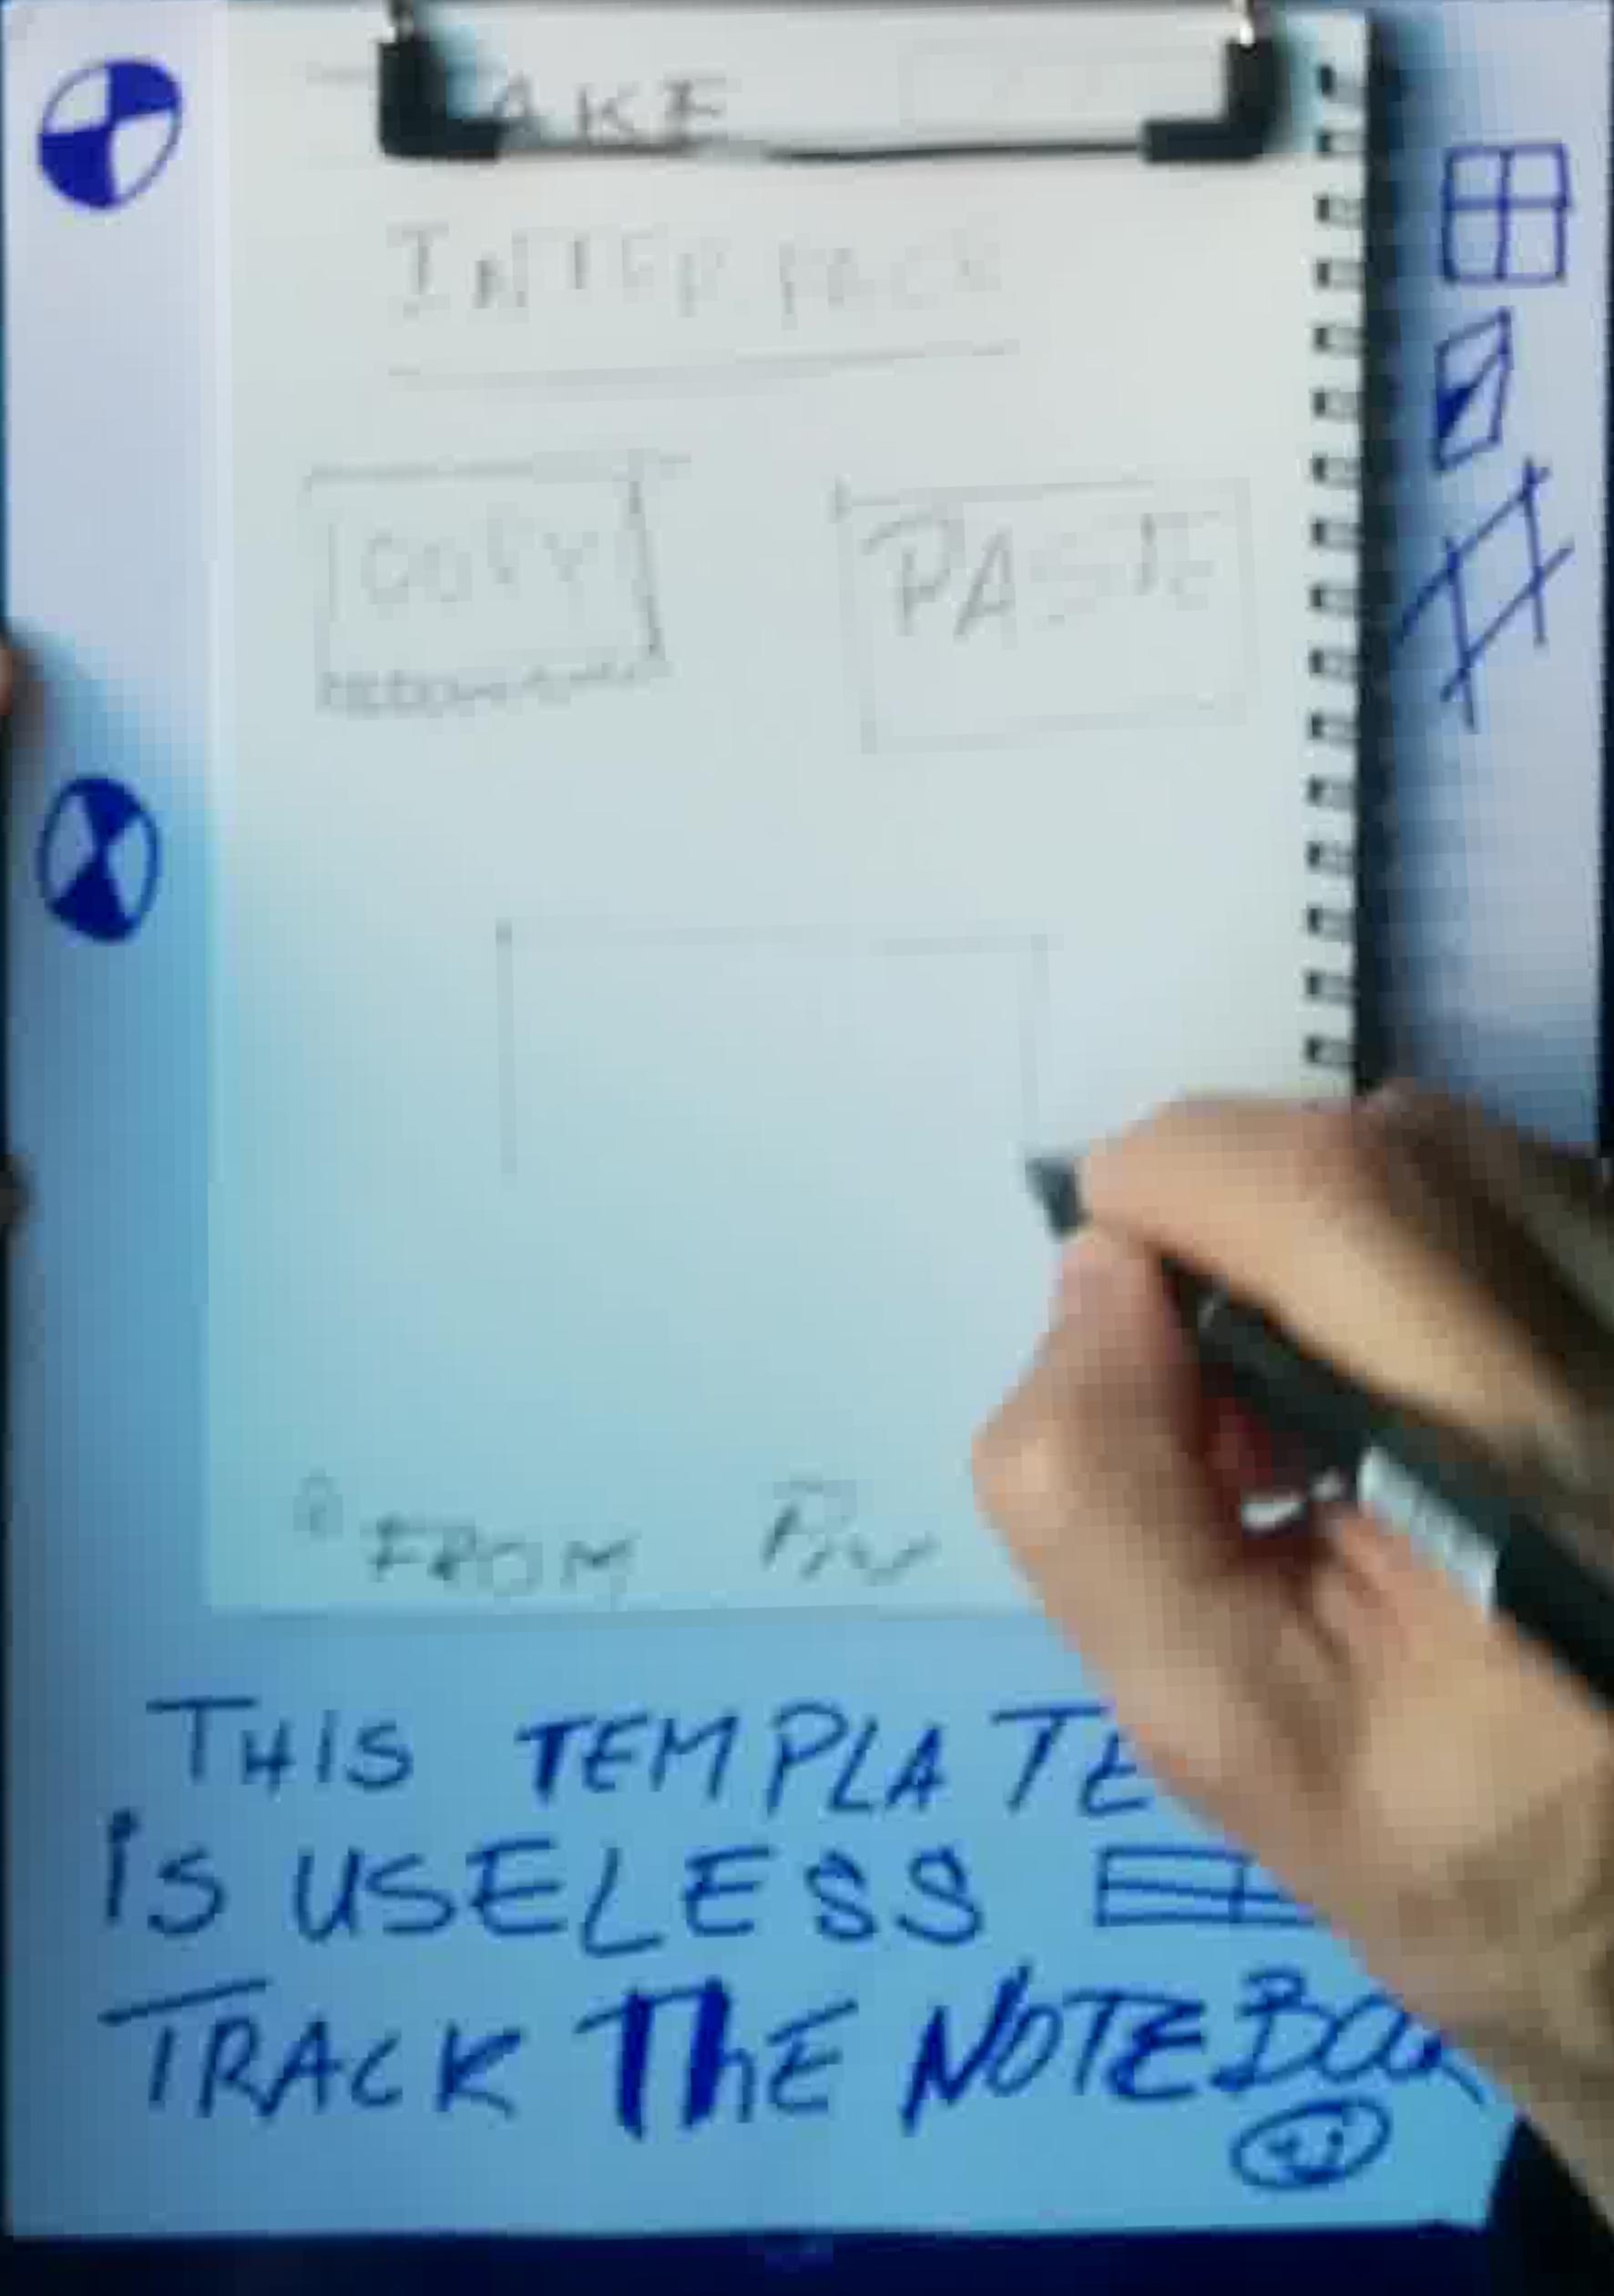 AKE
INTERFACE
COPY
PASTE
FROM
THIS TEMPLATE
iS USELESS
TRACK ThE NOTEBOO